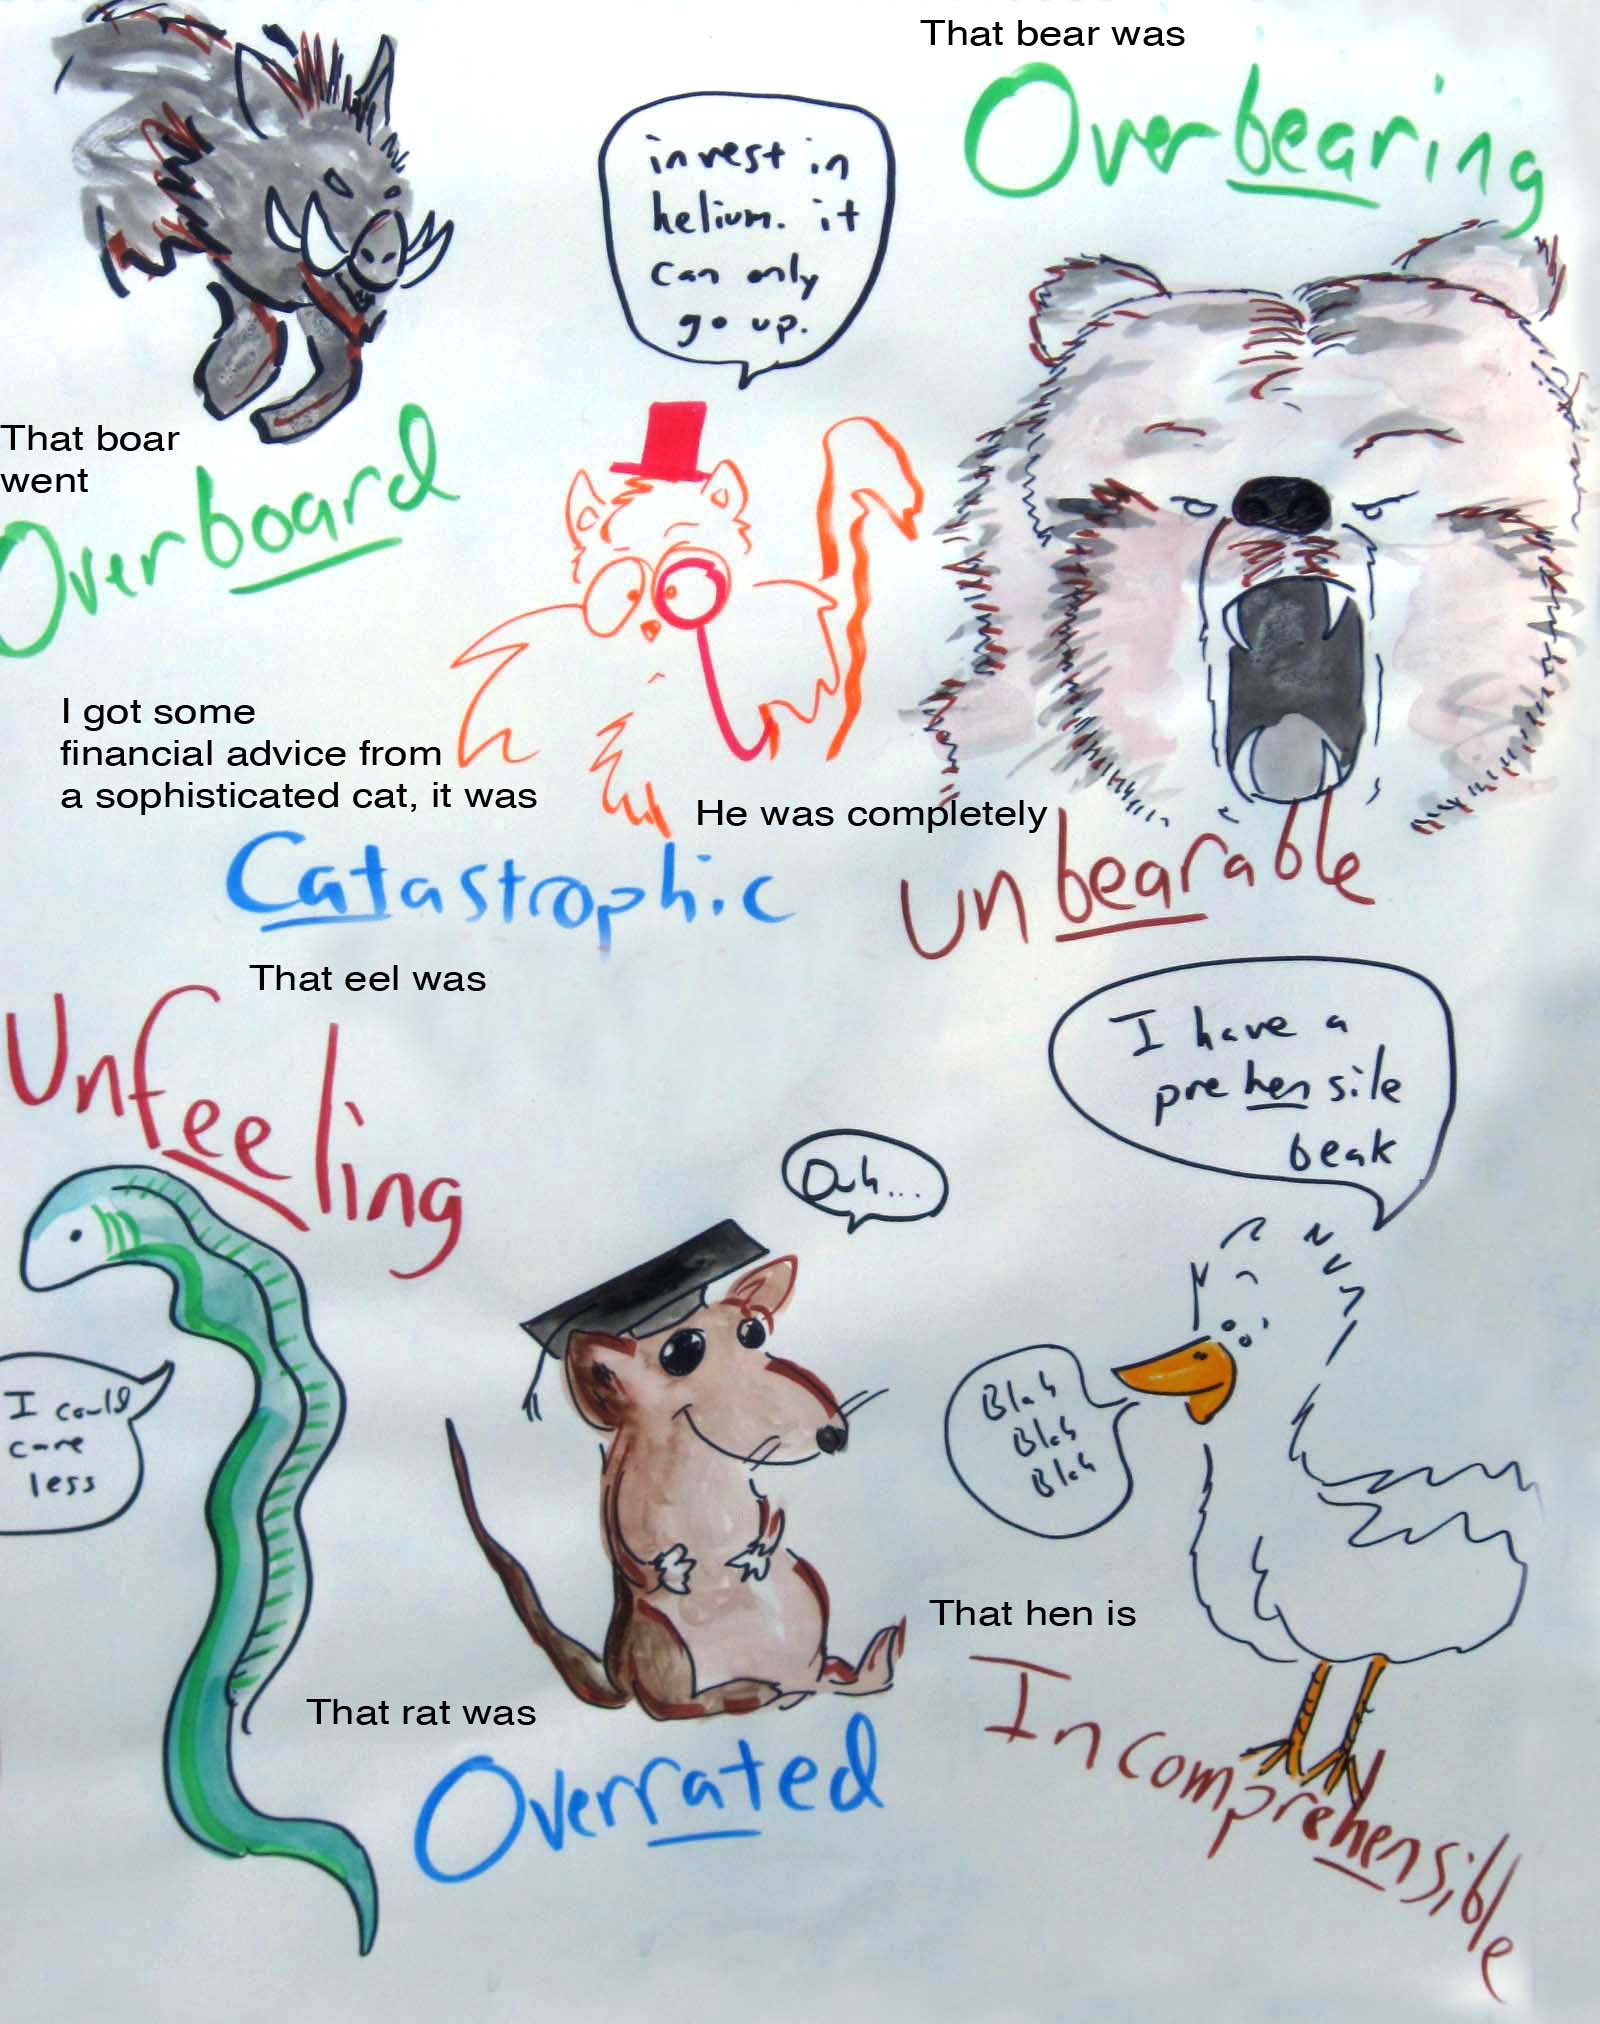 That boar
went
Overboard
invest in
helium. it
can only
go up.
I got some
financial advice from
a sophisticated cat, it was
Catastrophic
That bear was
Overbearing
He was completely
unbearable
That eel was
Unfeeling
I could
care
less
Duh...
That rat was
Overrated
I have a
prehensile
beak
Blah
Blah
Blah
That hen is
Incomprehensible